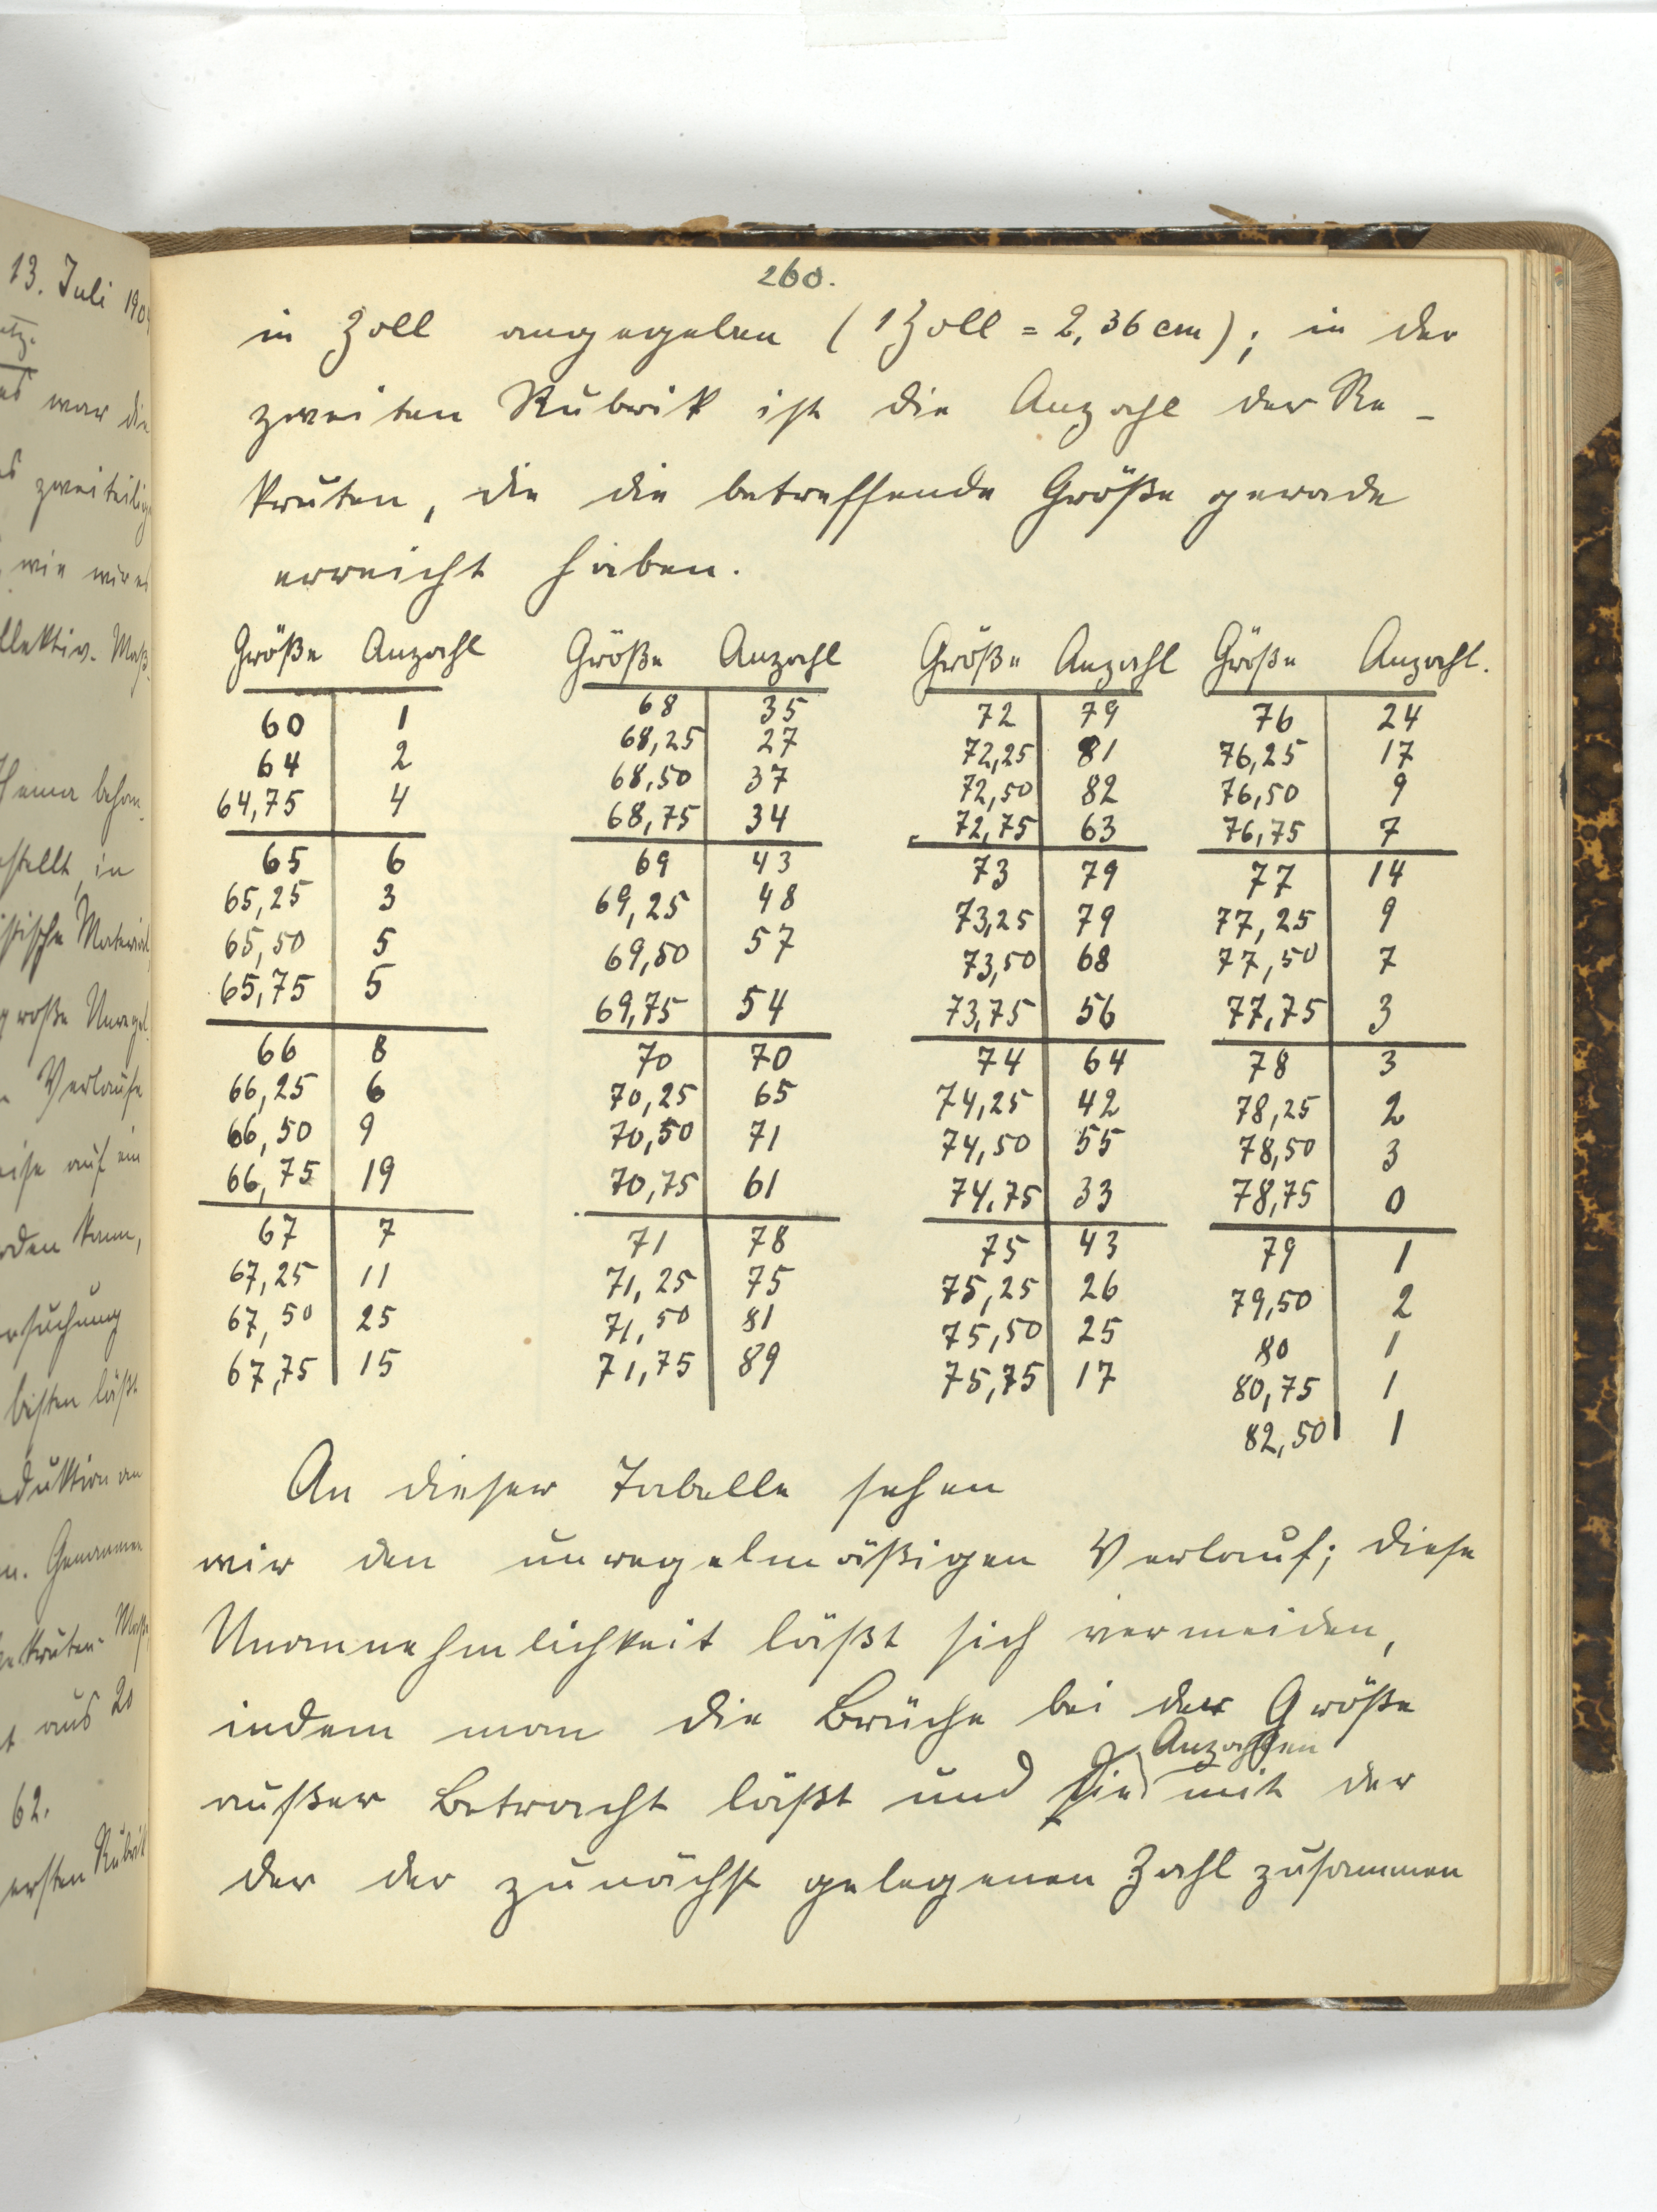 13. Juli 190
war die
zweiteilig
wie wir es
260.
in Zoll angegeben (1 Zoll = 2,36 cm); in der
zweiten Rubrik ist die Anzahl der Re-
kruten, die die betreffende Größe gerade
erreicht haben.
Größe Anzahl Größe Anzahl Größe Anzahl Größe Anzahl.
60 1 68 35 72 79 76 24
64 2 68,25 27 72,25 81 76,25 17
64,75 4 68,50 37 72,50 82 76,50 9
68,75 34 72,75 63 76,75 7
65 6 69 43 73 79 77 14
65,25 3 69,25 48 73,25 79 77,25 9
65,50 5 69,50 57 73,50 68 77,50 7
65,75 5 69,75 54 73,75 56 77,75 3
66 8 70 70 74 64 78 3
66,25 6 70,25 65 74,25 42 78,25 2
66,50 9 70,50 71 74,50 55 78,50 3
66,75 19 70,75 61 74,75 33 78,75 0
67 7 71 78 75 43 79 1
67,25 11 71,25 75 75,25 26 79,50 2
67,50 25 71,50 81 75,50 25 80 1
67,75 15 71,75 89 75,75 17 80,75 1
82,50 1
An dieser Tabelle sehen
wir den unregelmäßigen Verlauf; diese
Unannehmlichkeit läßt sich vermeiden,
indem man die Brüche bei der Größe
Anzahlen
außer Betracht läßt und sie mit der
der der zunächst gelegenen Zahl zusammen